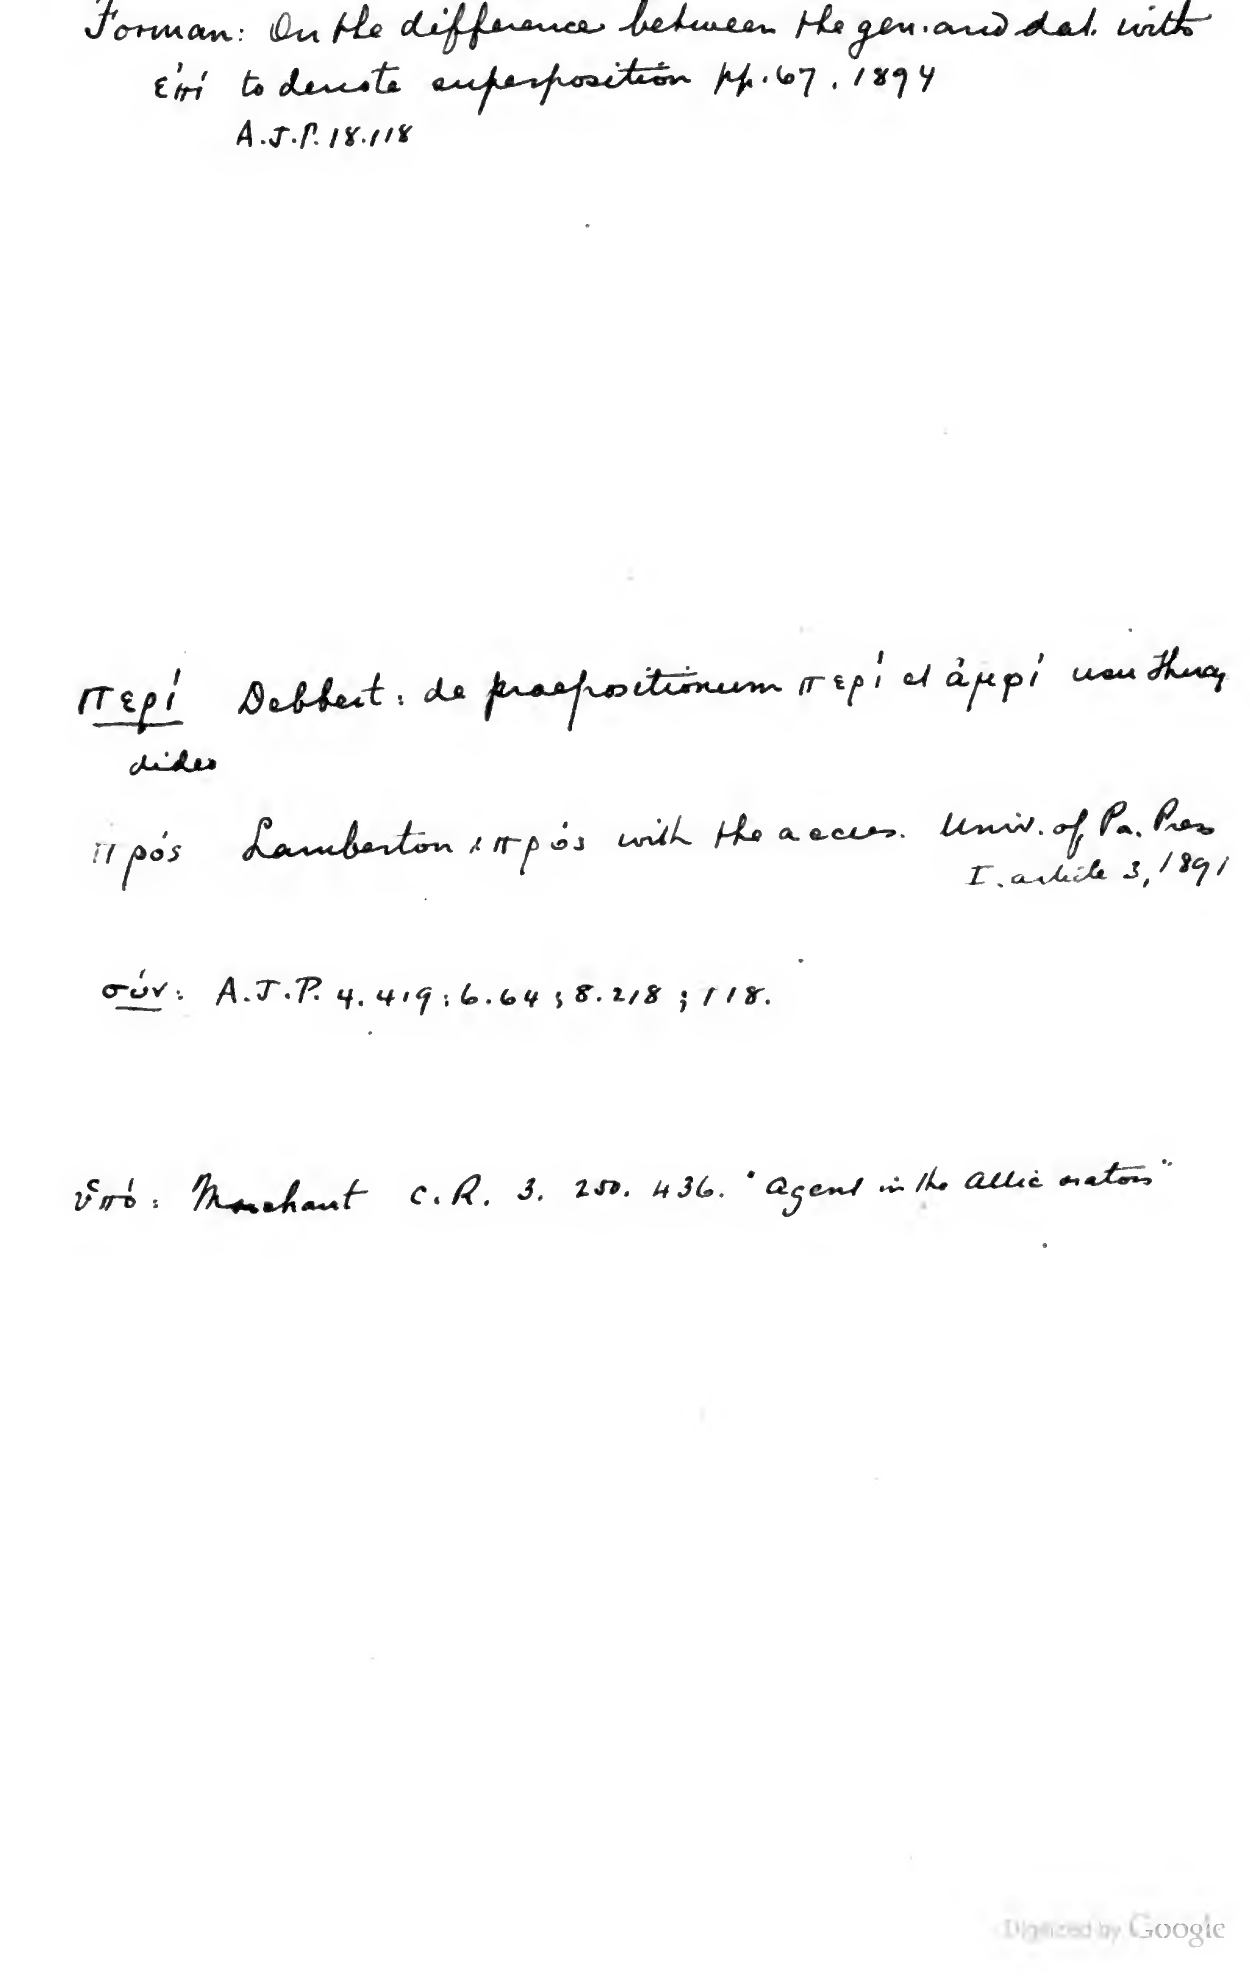 Forman: On the difference between the gen. and dat. with
ἐπί to denote superposition pp. 67, 1894
A.J.P. 18.118
περί Debbert: de praepositionum περί et ἀμφί usu Thucy
dideo
πρός Lamberton: πρός with the accus. Univ. of Pa. Press
I. article 3, 1891
σύν: A.J.P. 4.419; 6.64; 8.218; 118.
ὑπό: Marchant C.R. 3. 250. 436. "Agent in the Attic orators"
Digitized by Google